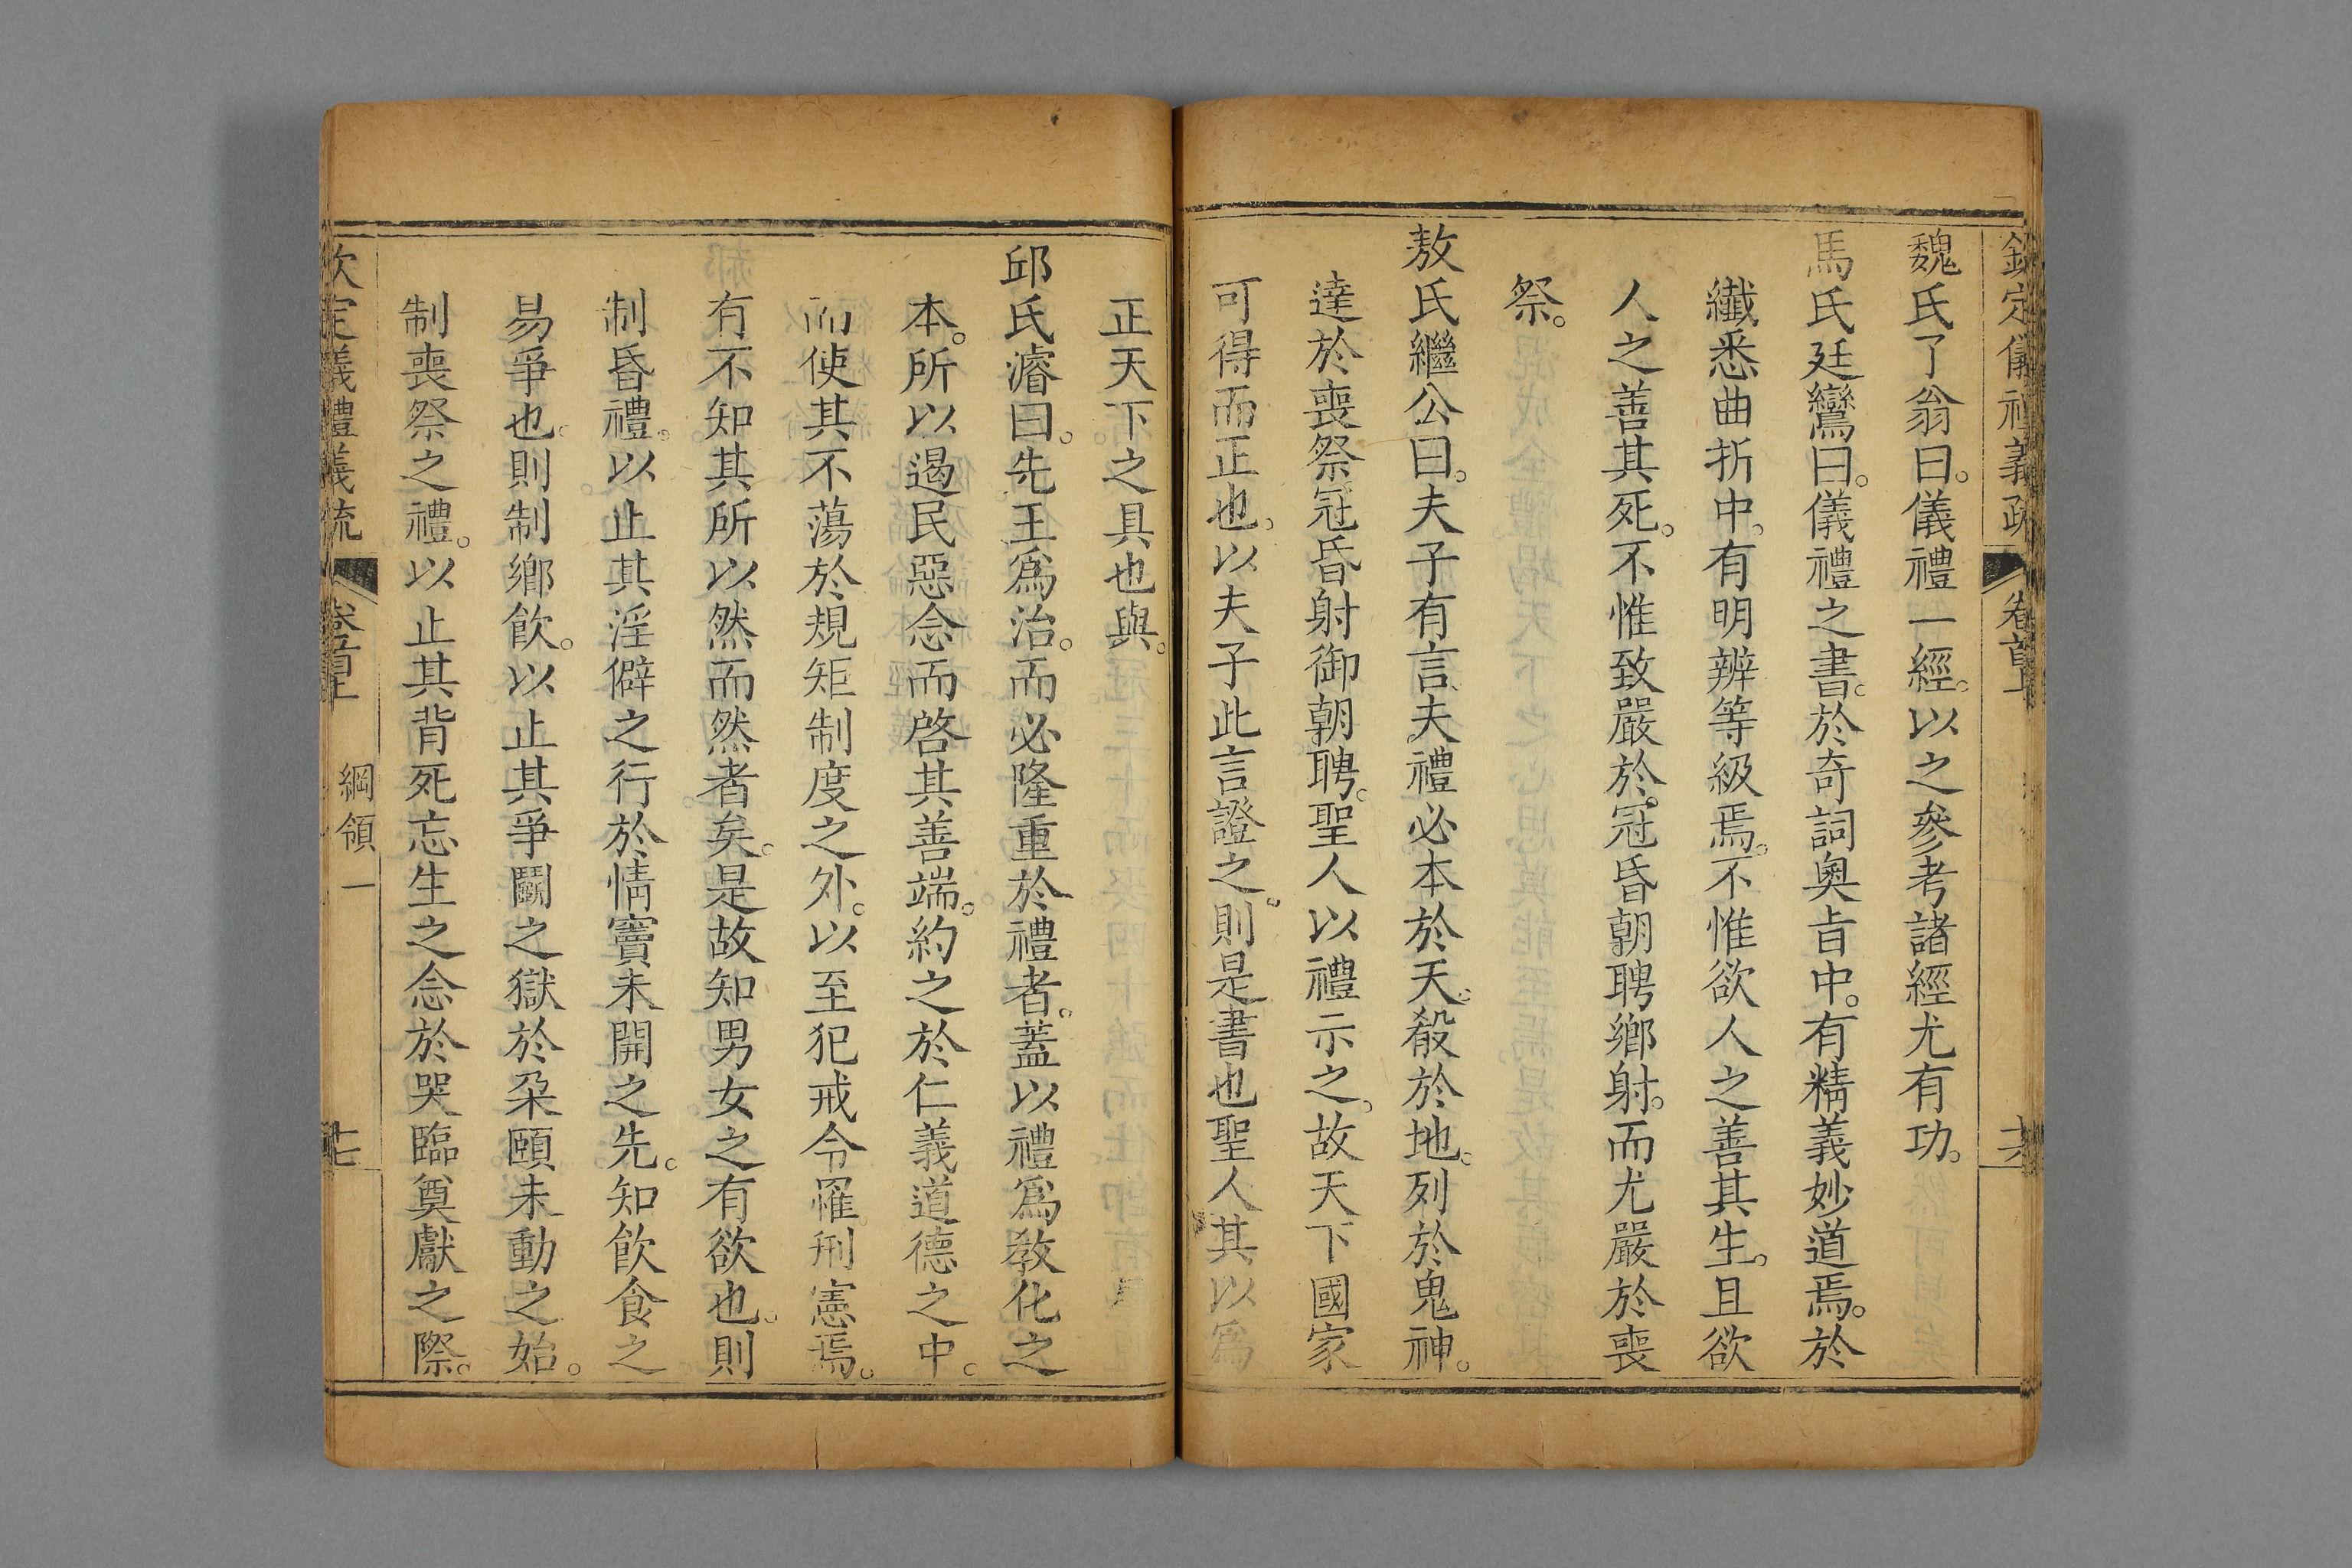 欽定儀禮義疏 卷首上 十六
魏氏了翁曰。儀禮一經。以之參考諸經尤有功。
馬氏廷鸞曰。儀禮之書。於奇詞奧旨中。有精義妙道焉。於
纖悉曲折中。有明辨等級焉。不惟欲人之善其生。且欲
人之善其死。不惟致嚴於冠昏朝聘鄉射。而尤嚴於喪
祭。
敖氏繼公曰。夫子有言。夫禮必本於天。殽於地。列於鬼神。
達於喪祭冠昏射御朝聘。聖人以禮示之。故天下國家
可得而正也。以夫子此言證之。則是書也聖人其以爲
正天下之具也與。
邱氏濬曰。先王爲治。而必隆重於禮者。蓋以禮爲教化之
本。所以遏民惡念而啓其善端。約之於仁義道德之中。
而使其不蕩於規矩制度之外。以至犯戒令罹刑憲焉。
有不知其所以然而然者矣。是故知男女之有欲也。則
制昏禮。以止其淫僻之行於情竇未開之先。知飲食之
易爭也。則制鄉飲。以止其爭鬭之獄於朶頤未動之始。
制喪祭之禮。以止其背死忘生之念於哭臨奠獻之際。
欽定儀禮義疏 卷首上 綱領一 十七